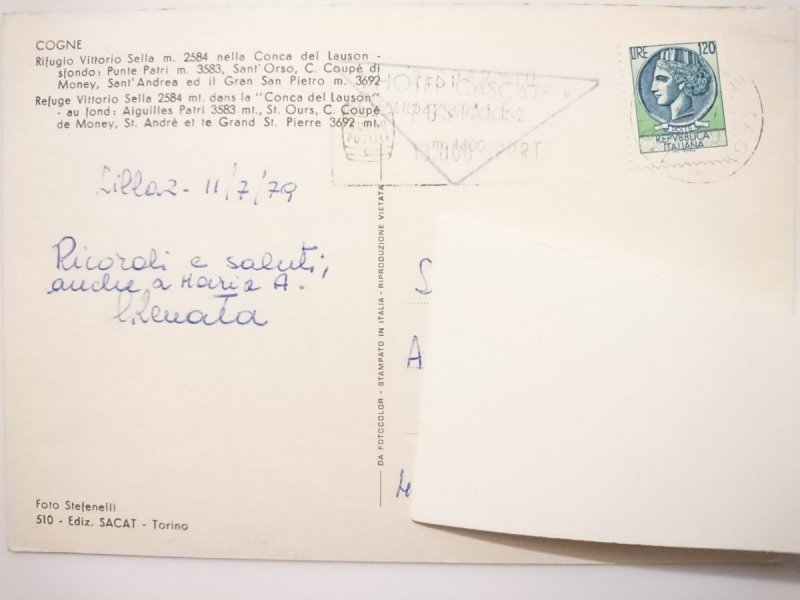 COGNE
Rifugio Vittorio Sella m. 2584 nella Conca del Lauson -
sfondo: Punte Patri m. 3583, Sant'Orso, C. Coupé di
Money, Sant'Andrea ed il Gran San Pietro m. 3692
Refuge Vittorio Sella 2584 mt. dans la "Conca del Lauson"
- au fond: Aiguilles Patri 3583 mt., St. Ours, C. Coupé
de Money, St. André et te Grand St. Pierre 3692 mt.
HOTEL CASCATE
m. 1600
LIRE 120
POSTE
REPVBBLICA
ITALIANA
Lillaz - 11/7/79
Ricordi e saluti,
anche a Maria A.
Renata
DA FOTOCOLOR - STAMPATO IN ITALIA - RIPRODUZIONE VIETATA
S
A
Foto Stefenelli
510 - Ediz. SACAT - Torino